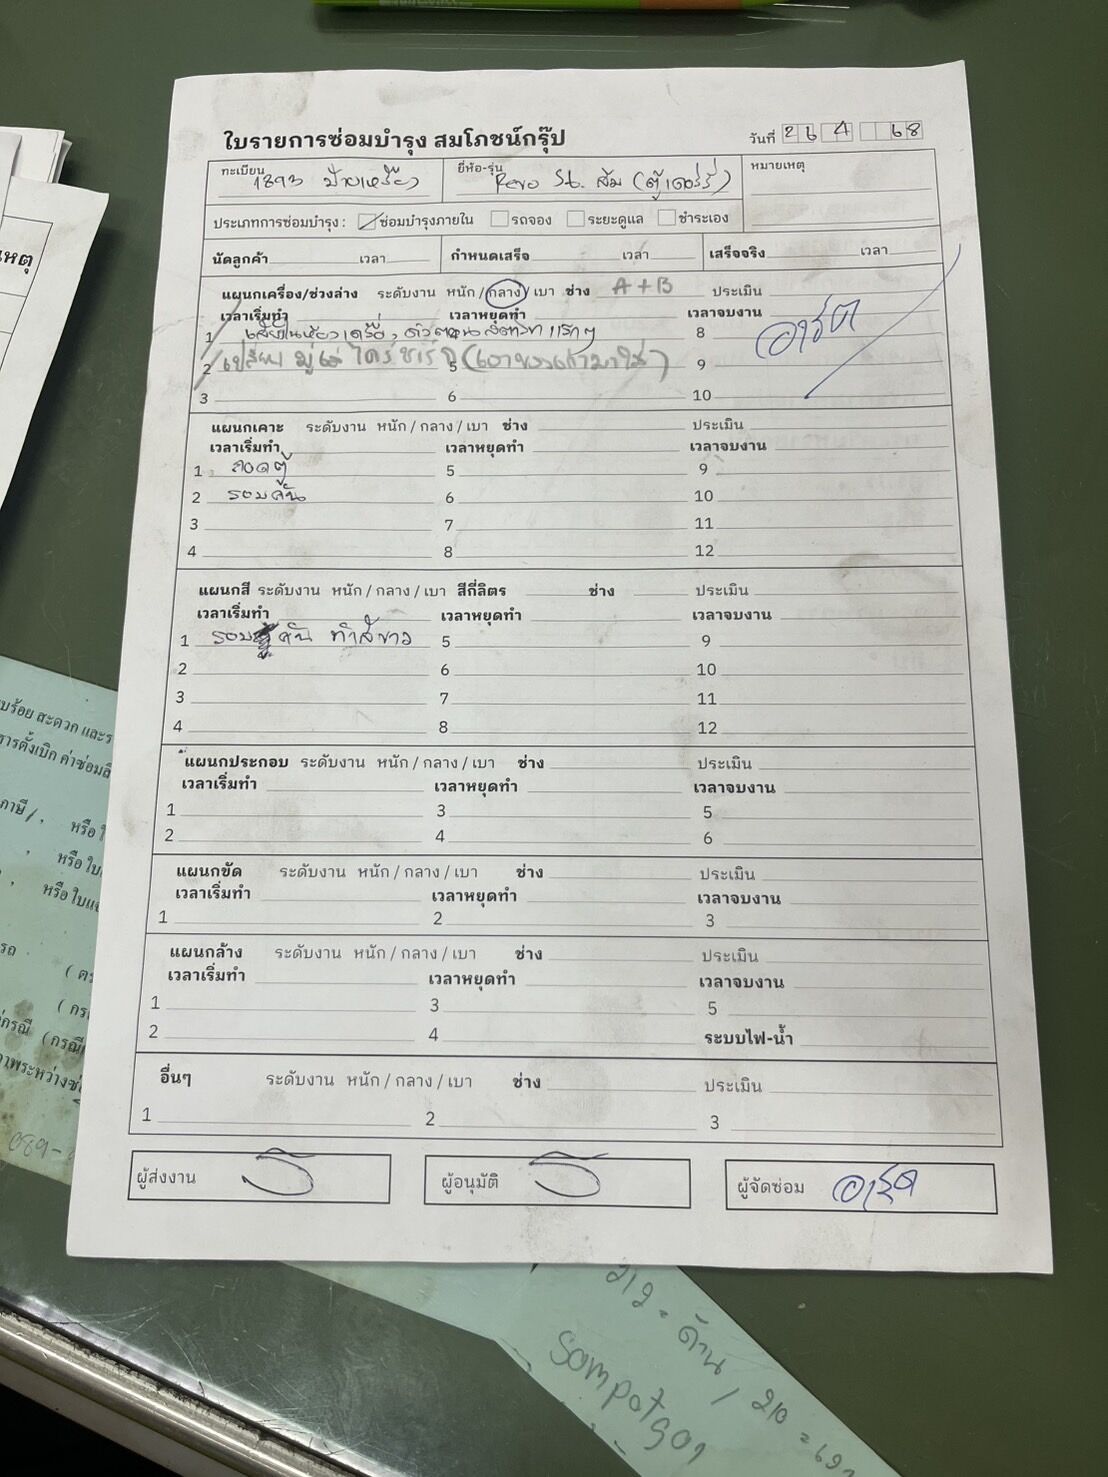 ใบรายการซ่อมบำรุง สมโภชน์กรุ๊ป
วันที่ 26 4 68
ทะเบียน 1893 ป้ายเหลือง
ยี่ห้อ-รุ่น Revo St. ส้ม (ตู้เดอร์รี่)
หมายเหตุ
ประเภทการซ่อมบำรุง : ซ่อมบำรุงภายใน รถจอง ระยะดูแล ชำระเอง
นัดลูกค้า เวลา กำหนดเสร็จ เวลา เสร็จจริง เวลา
แผนกเครื่อง/ช่วงล่าง ระดับงาน หนัก / กลาง / เบา ช่าง A+B ประเมิน
เวลาเริ่มทำ เวลาหยุดทำ เวลาจบงาน
1 เสียงในห้องเครื่อง, ตัวตอนสตาร์ทแรกๆ 8 อาร์ต
2 เปลี่ยน มู่เล่ ไดร์ชาร์จ 5 (เอาของเก่ามาใส่) 9
3 6 10
แผนกเคาะ ระดับงาน หนัก / กลาง / เบา ช่าง ประเมิน
เวลาเริ่มทำ เวลาหยุดทำ เวลาจบงาน
1 ถอดตู้ 5 9
2 รอบคัน 6 10
3 7 11
4 8 12
แผนกสี ระดับงาน หนัก / กลาง / เบา สีกี่ลิตร ช่าง ประเมิน
เวลาเริ่มทำ เวลาหยุดทำ เวลาจบงาน
1 รอบคัน ทำสีขาว 5 9
2 6 10
3 7 11
4 8 12
แผนกประกอบ ระดับงาน หนัก / กลาง / เบา ช่าง ประเมิน
เวลาเริ่มทำ เวลาหยุดทำ เวลาจบงาน
1 3 5
2 4 6
แผนกขัด ระดับงาน หนัก / กลาง / เบา ช่าง ประเมิน
เวลาเริ่มทำ เวลาหยุดทำ เวลาจบงาน
1 2 3
แผนกล้าง ระดับงาน หนัก / กลาง / เบา ช่าง ประเมิน
เวลาเริ่มทำ เวลาหยุดทำ เวลาจบงาน
1 3 5
2 4 ระบบไฟ-น้ำ
อื่นๆ ระดับงาน หนัก / กลาง / เบา ช่าง ประเมิน
1 2 3
ผู้ส่งงาน
ผู้อนุมัติ
ผู้จัดซ่อม อาร์ต
หตุ
บร้อย สะดวก และร
ารตั้งเบิก ค่าซ่อม
ภาษี/, หรือ
, หรือใบ
, หรือใบ
รถ
089-
212 = ด้าน / 210 =